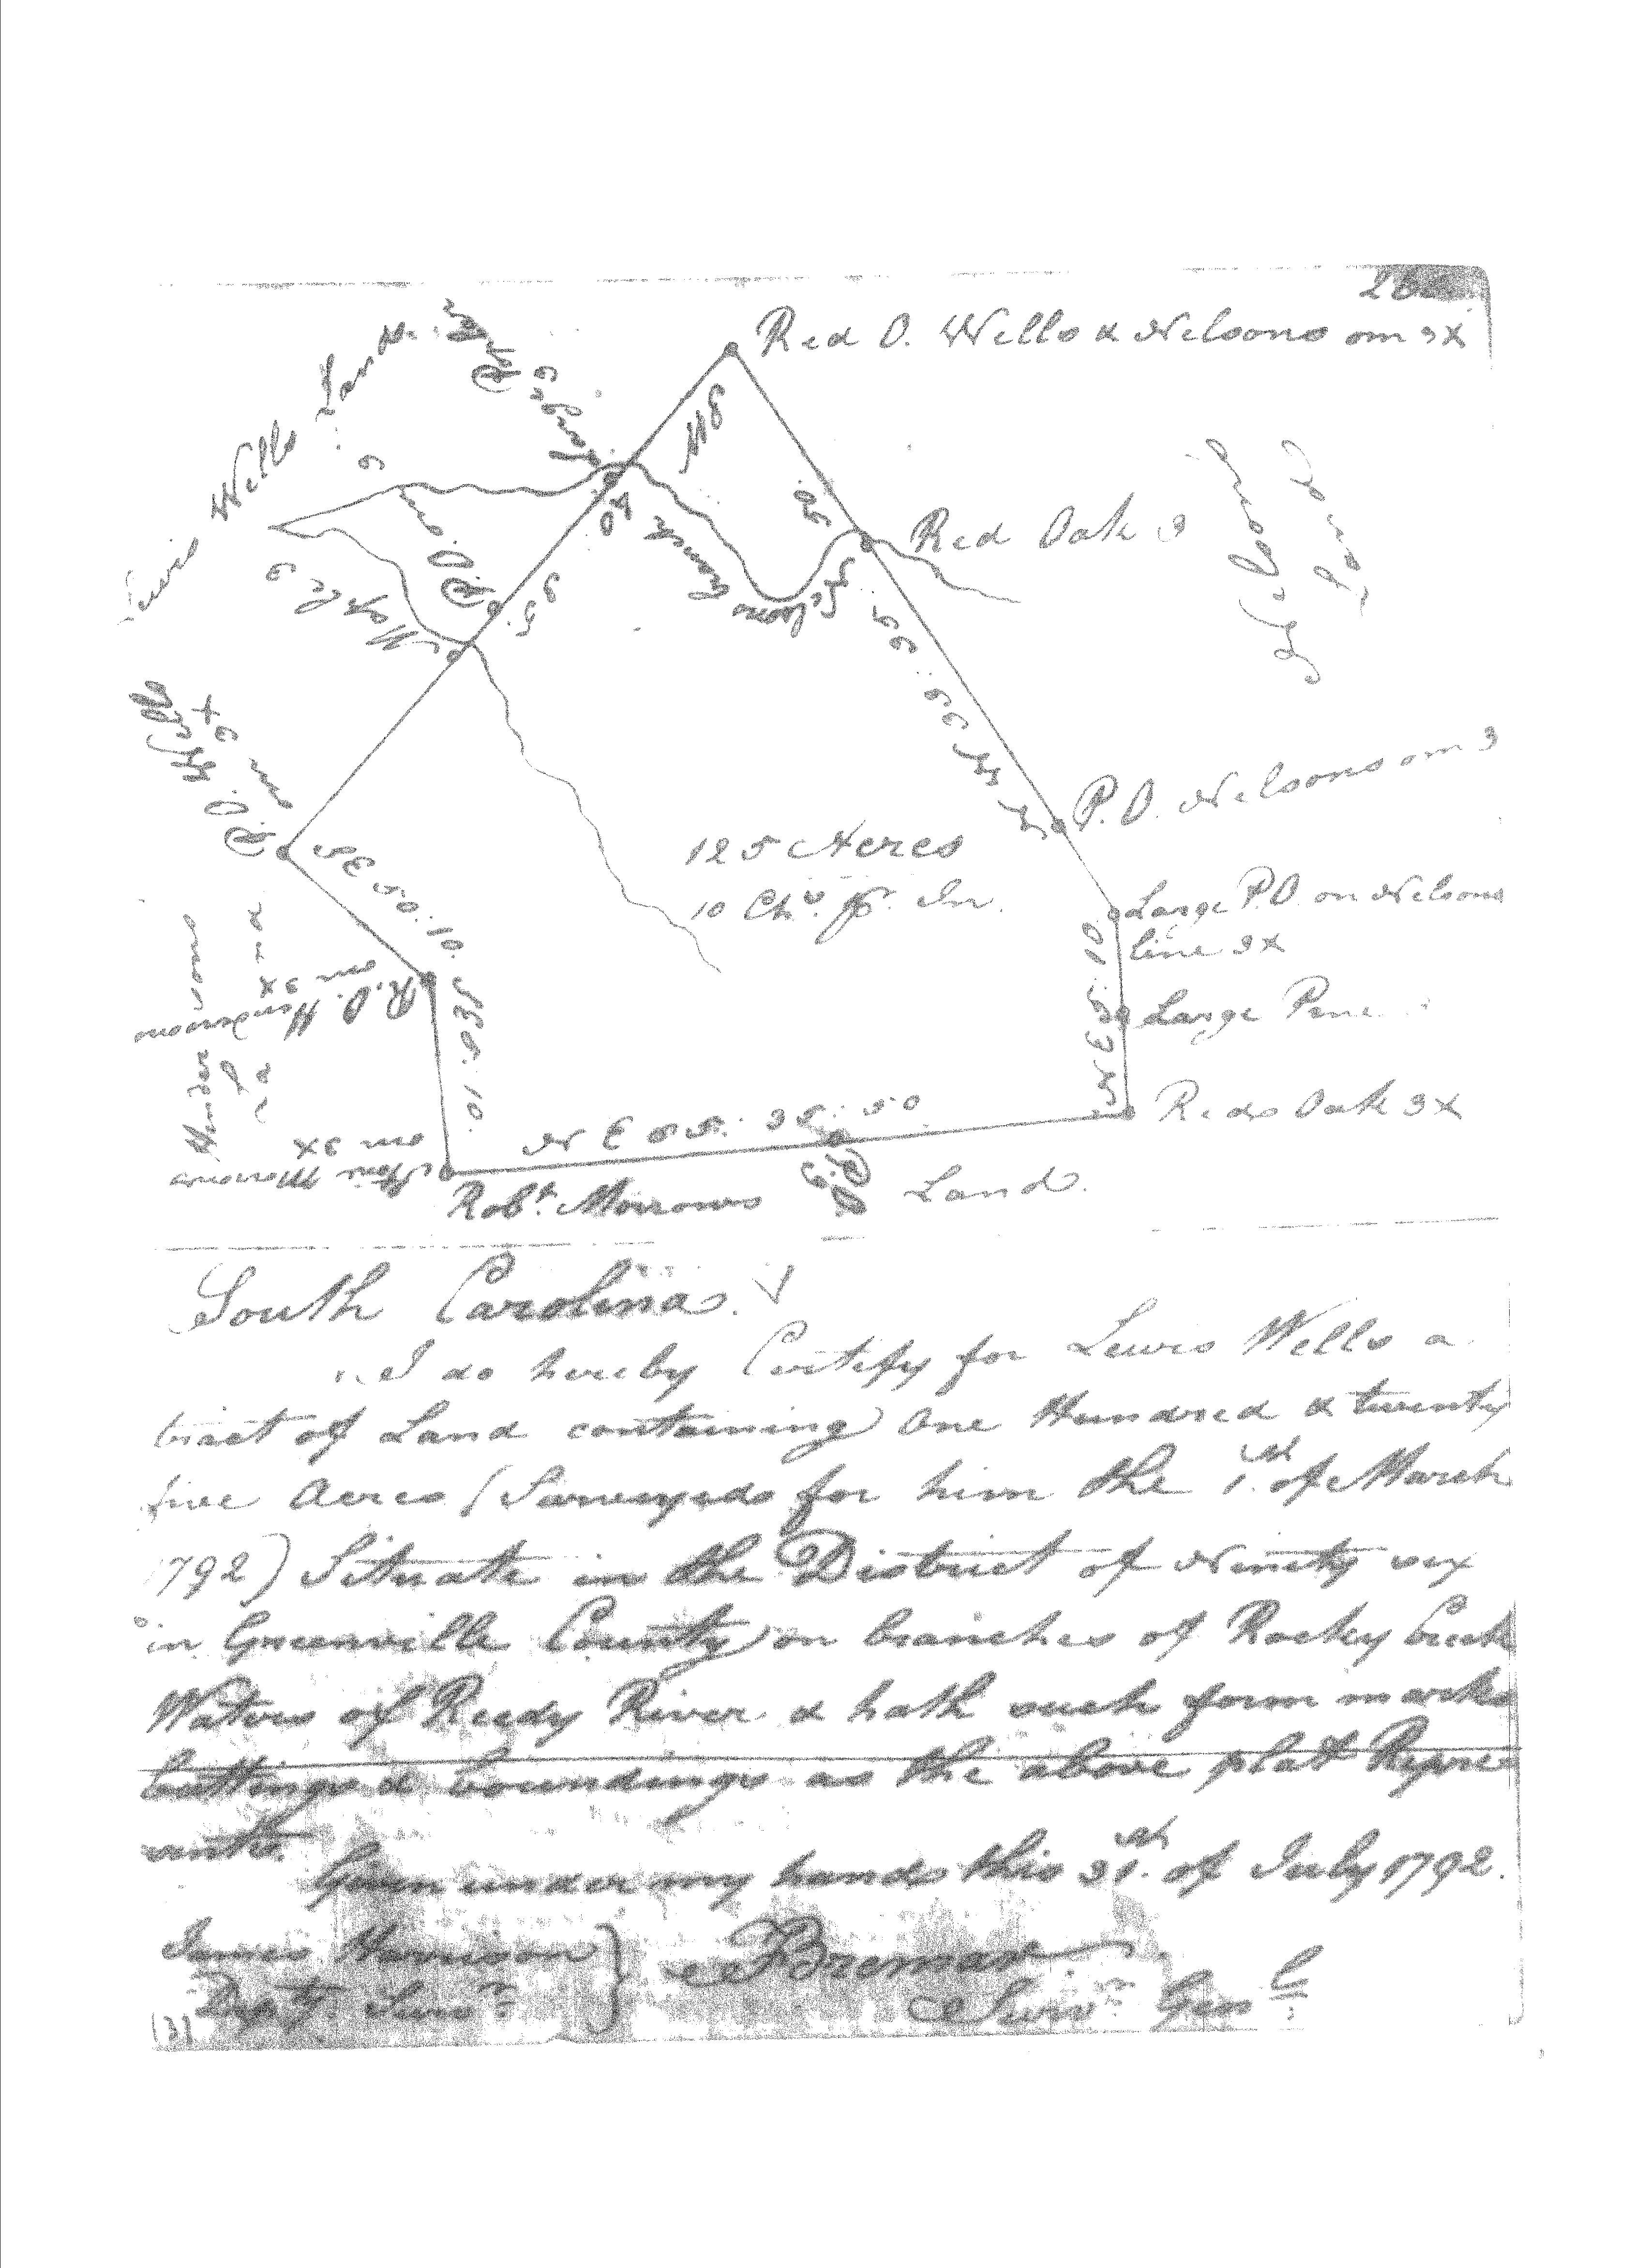 Red O. Wells & Nelsons om 3X
Lewis Wells Land
Red Oak 3
Nelsons
Land
Maple 3
Branch
P.O. Nelsons om 3
125 Acres
10 Chs. pr. In.
Large P.O. on Nelsons
line 3X
Large Pine
R.O. Hendersons
om 3X
Hendersons
Reds Oak 3X
N E 85: 35: 50
om 3X
Robt. Morrows Land.
South Carolina.
I do hereby Certify for Lewis Wells a
tract of Land containing One Hundred & twenty
five Acres (Surveyed for him the 1st. of March
1792) Situate in the District of Ninety six
in Greenville County on branches of Rocky Creek
Waters of Reedy River & hath such form marks
buttings & boundings as the above plat Repre
sents.
Given under my hand this 31st. of July 1792.
James Harrison
Depty. Survr.
F Bremar
Survr. Genl.